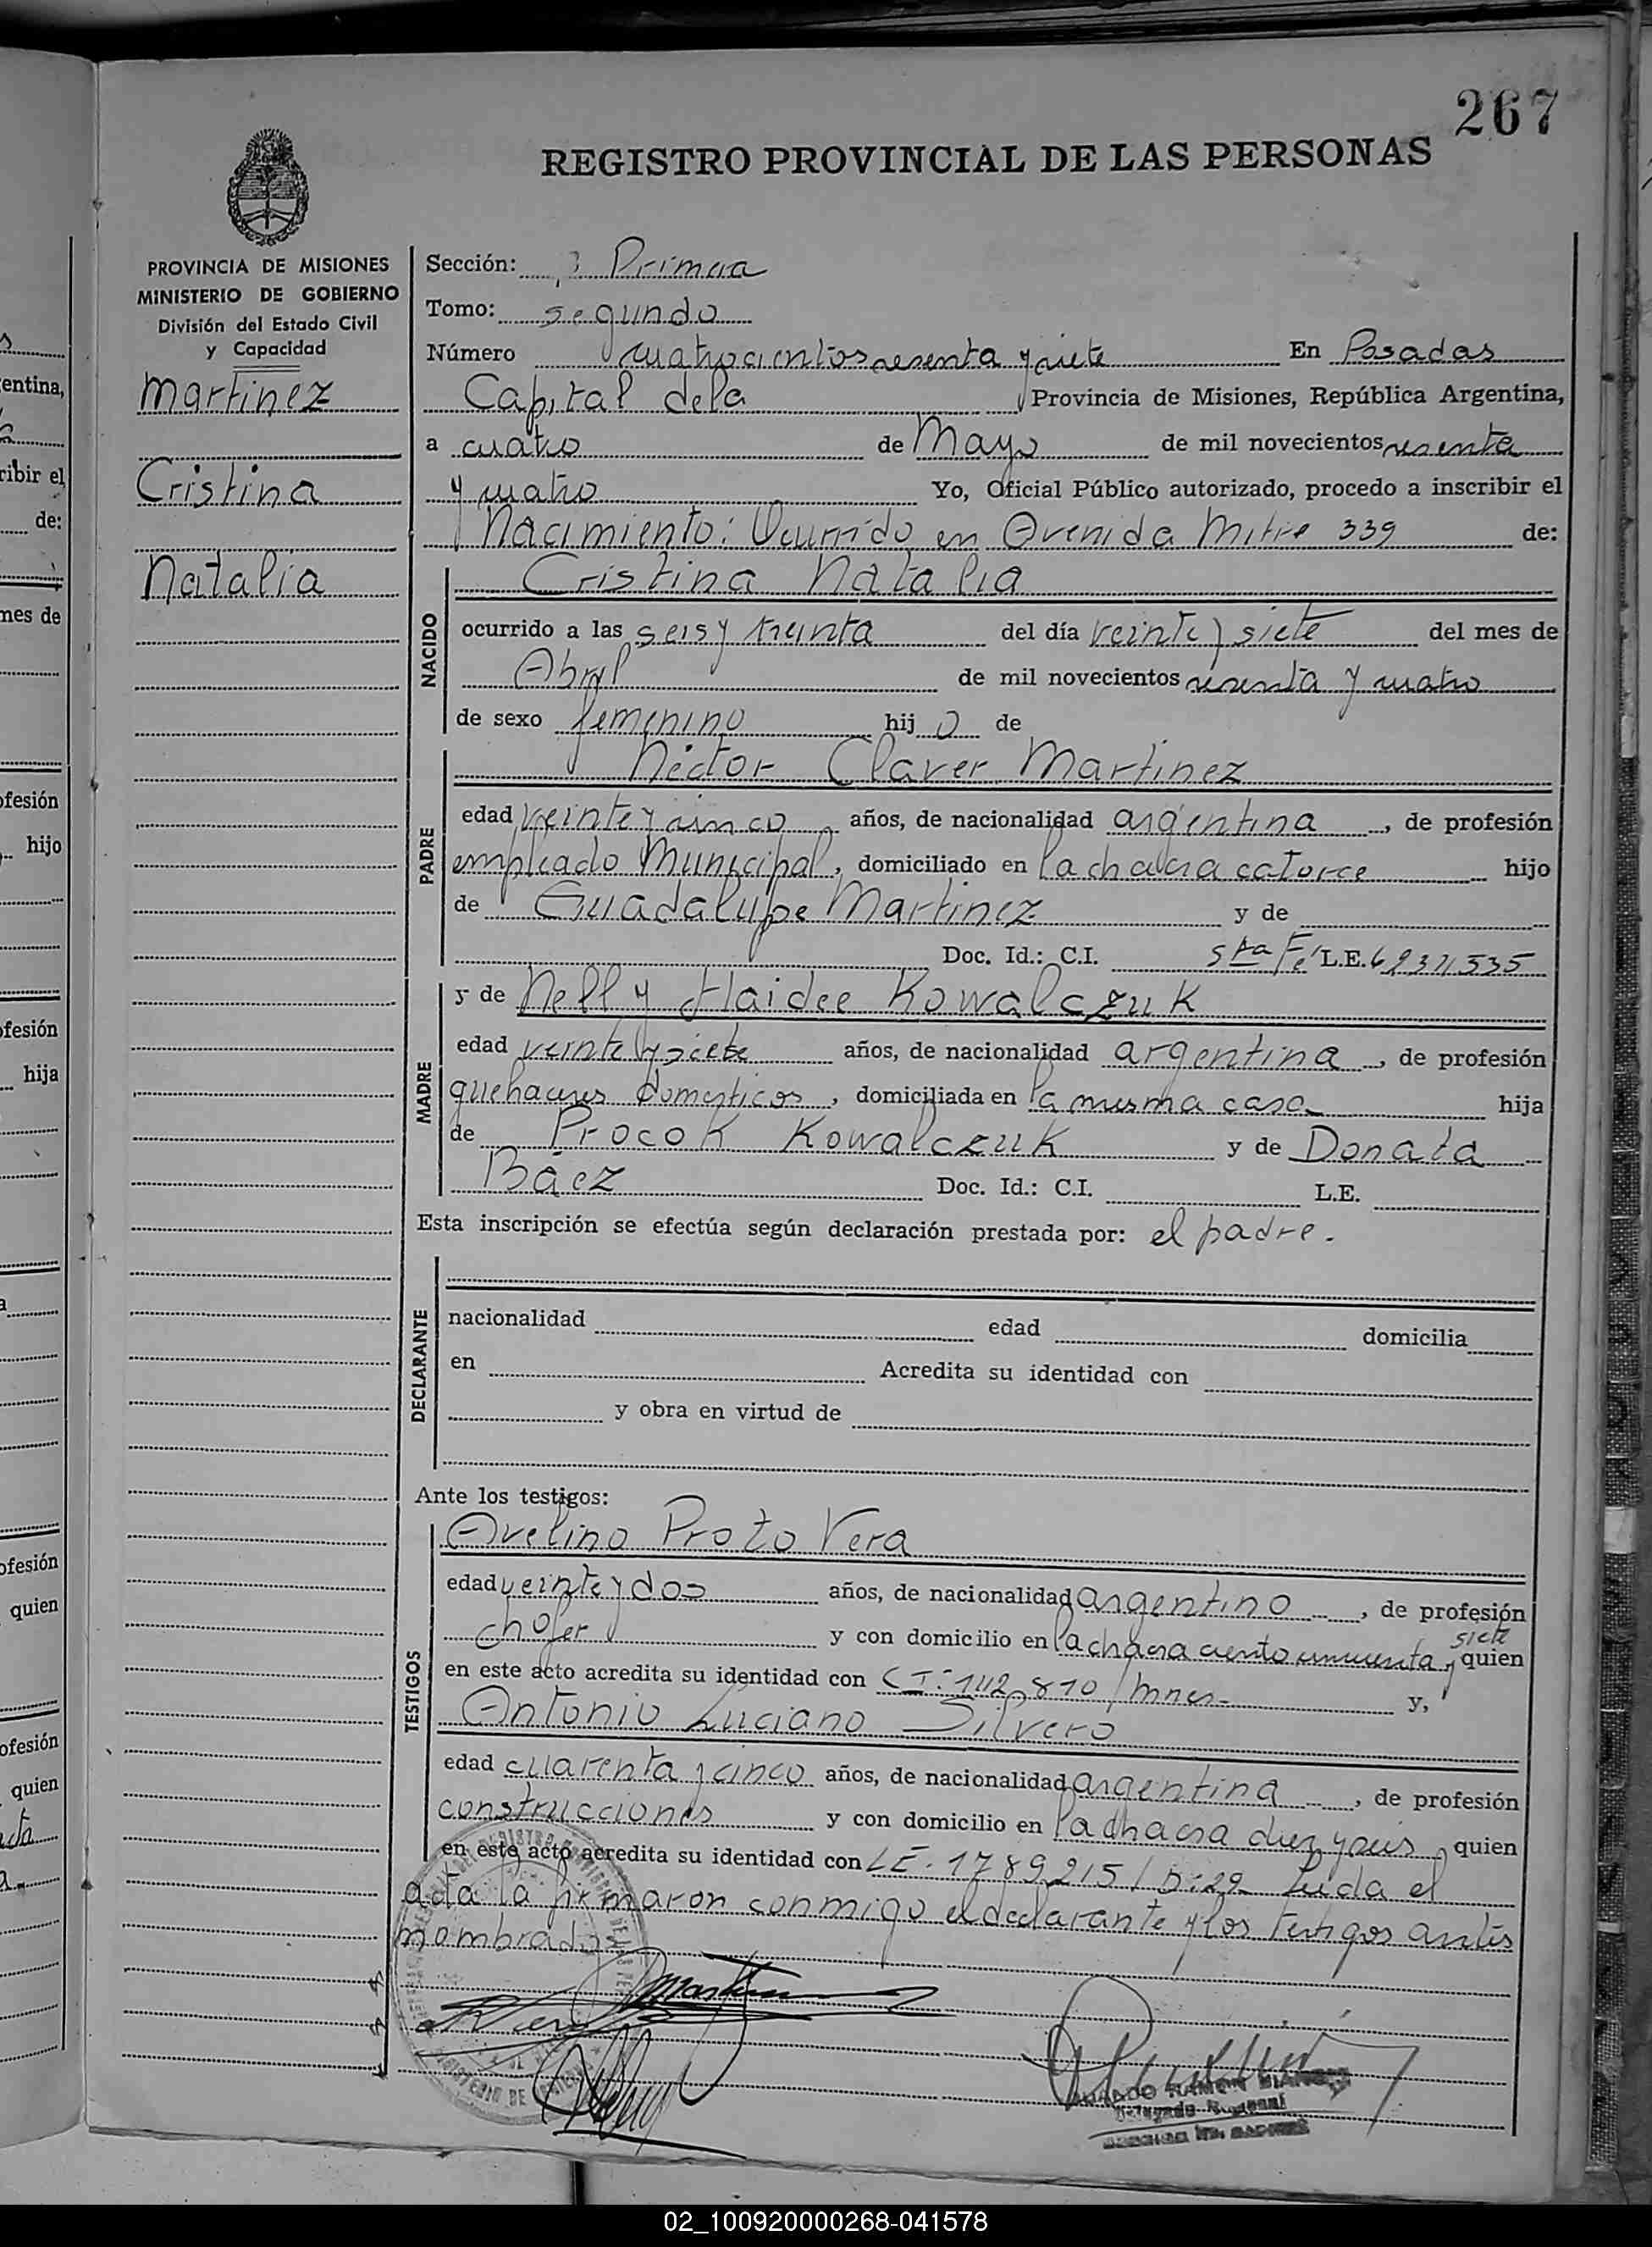 267
REGISTRO PROVINCIAL DE LAS PERSONAS
PROVINCIA DE MISIONES
MINISTERIO DE GOBIERNO
División del Estado Civil
y Capacidad
Martinez
Cristina
Natalia
Sección: Primera
Tomo: segundo
Número cuatrocientos sesenta y siete En Posadas
Capital de la Provincia de Misiones, República Argentina,
a cuatro de Mayo de mil novecientos sesenta
y cuatro Yo, Oficial Público autorizado, procedo a inscribir el
Nacimiento: Ocurrido en Avenida Mitre 339 de:
NACIDO
Cristina Natalia
ocurrido a las seis y treinta del día veinte y siete del mes de
Abril de mil novecientos sesenta y cuatro
de sexo femenino hij a de
PADRE
Héctor Claver Martinez
edad veinte y cinco años, de nacionalidad argentina, de profesión
empleado Municipal, domiciliado en la chacra catorce hijo
de Guadalupe Martinez y de
Doc. Id.: C.I. Sta Fe L.E.
MADRE
y de Nelly Haidee Kowalczuk
edad veinte y siete años, de nacionalidad argentina, de profesión
quehaceres domesticos, domiciliada en la misma casa hija
de Procok Kowalczuk y de Donata
Báez Doc. Id.: C.I. L.E.
Esta inscripción se efectúa según declaración prestada por: el padre.
DECLARANTE
nacionalidad edad domicilia
en Acredita su identidad con
y obra en virtud de
Ante los testigos:
TESTIGOS
Avelino Proto Vera
edad veinte y dos años, de nacionalidad argentino, de profesión
chofer y con domicilio en la chacra ciento cincuenta y siete quien
en este acto acredita su identidad con C I: 142.810/Mnes- y,
Antonio Luciano Silvero
edad cuarenta y cinco años, de nacionalidad argentina, de profesión
construcciones y con domicilio en la chacra diez y seis, quien
en este acto acredita su identidad con L E. 1789215/ Leida el
acta la firmaron conmigo el declarante y los testigos antes
nombrados
02_100920000268-041578